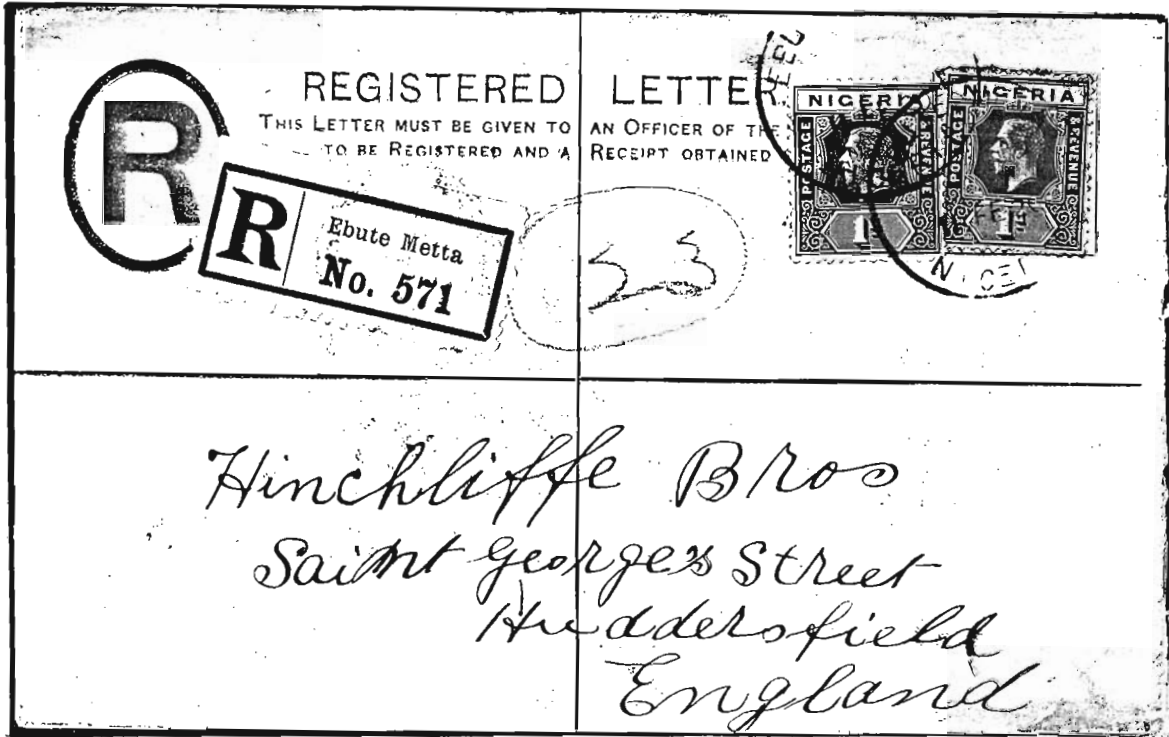 REGISTERED LETTER
THIS LETTER MUST BE GIVEN TO AN OFFICER OF THE
TO BE REGISTERED AND A RECEIPT OBTAINED
R
R
Ebute Metta
No. 571
NIGERIA
POSTAGE
& REVENUE
1s
NIGERIA
POSTAGE
& REVENUE
Hinchliffe Bros
Saint George's Street
Huddersfield
England